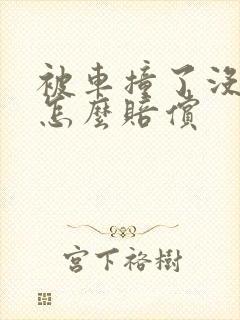 被車撞了
怎麼賠償
宮下裕樹